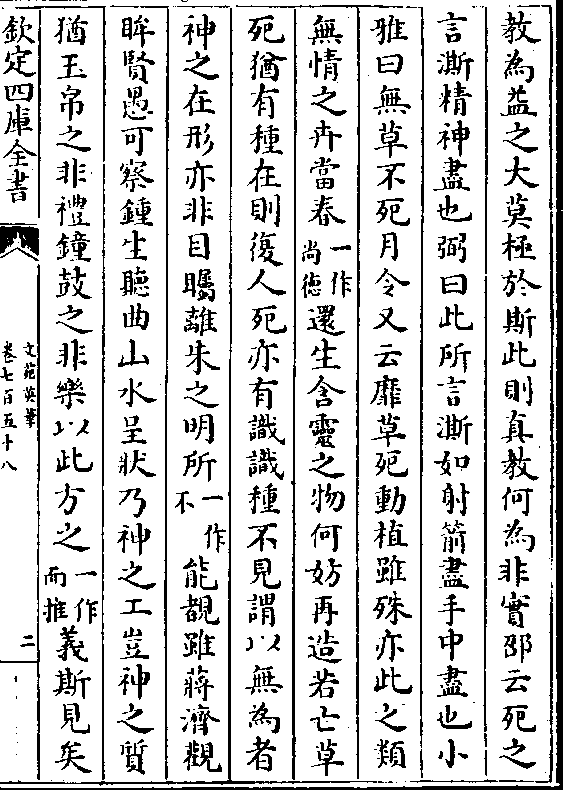 教為益之大莫極於斯此則真教何為非實邵云死之
言澌精神盡也弼曰此所言澌如射箭盡手中盡也小
雅曰無草不死月令又云靡草死動植雖殊亦此之類
無情之卉當春一作尚德還生含靈之物何妨再造若亡草
死猶有種在則復人死亦有識識種不見謂以無為者
神之在形亦非目矚離朱之明所一作不能覩雖蔣濟觀
眸賢愚可察鍾生聽曲山水呈狀乃神之工豈神之質
猶玉帛之非禮鐘鼓之非樂以此方之一作而推義斯見矣
欽定四庫全書
文苑英華
卷七百五十八
二